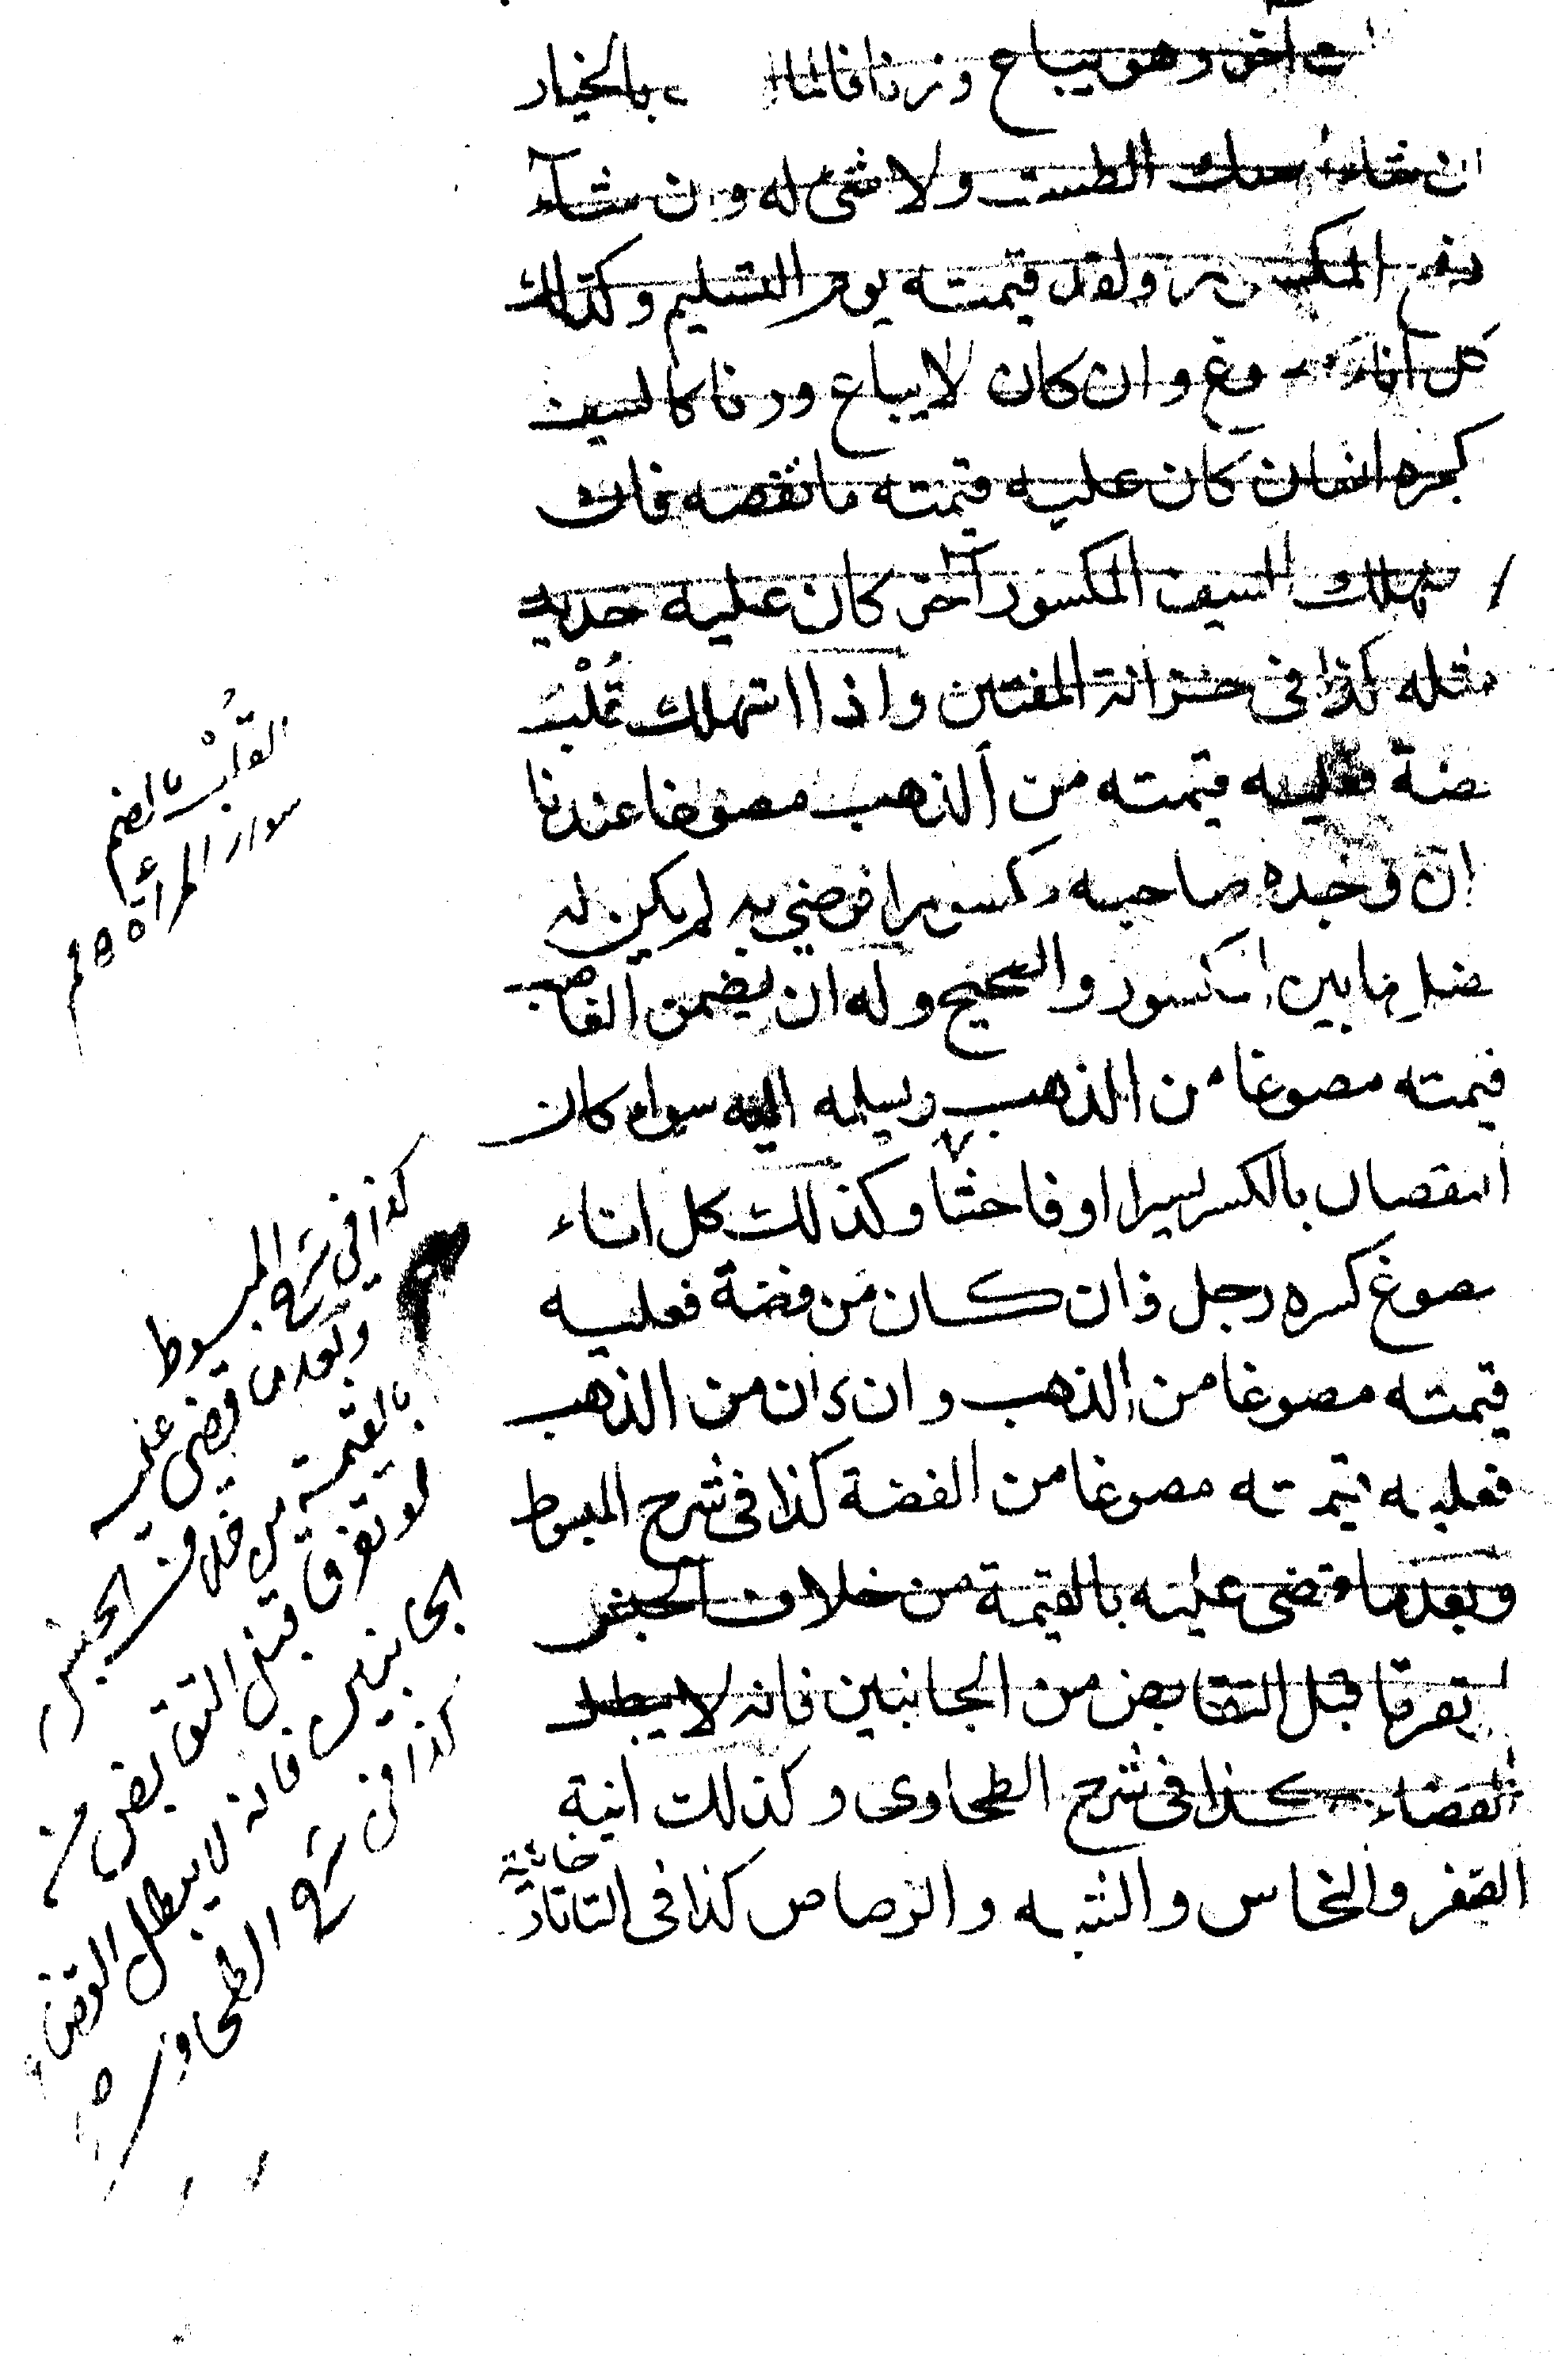 آخر وهو يباع وزنا فالمالك بالخيار
ان شاء امسك الطست ولا شئ له وان شاء
دفع المكسور واخذ قيمته يوم التسليم وكذلك
كل اناء مصوغ وان كان لا يباع وزنا كالسيف
كسره انسان كان عليه قيمته ما نقصه فان
استهلك السيف المكسور آخر كان عليه حديد
مثله كذا فى خزانة المفتين واذا استهلك قُلْبَ
فضة فعليه قيمته من الذهب مصوغا عندنا
ان وجده صاحبه مكسورا فرضي به لم يكن له
فضل ما بين المكسور والصحيح وله ان يضمن الغاصب
قيمته مصوغا من الذهب ويسلمه اليه سواء كان
النقصان بالكسر يسيرا او فاحشا وكذلك كل اناء
مصوغ كسره رجل فان كان من فضة فعليه
قيمته مصوغا من الذهب وان كان من الذهب
فعليه قيمته مصوغا من الفضة كذا فى شرح المبسوط
وبعد ما قضى عليه بالقيمة من خلاف الجنس
لو تفرقا قبل التقابض من الجانبين فانه لا يبطل
القضاء كذا فى شرح الطحاوى وكذلك انية
الصفر والنحاس والشبه والرصاص كذا فى التاتار
خانية
القُلْب بالضم
سوار المرأة
كذا في شرح المبسوط
وبعد ما قضى عليه
بالقيمة من خلاف الجنس
لو تفرقا قبل التقابض من
الجانبين فانه لا يبطل القضاء
كذا في شرح الطحاوي